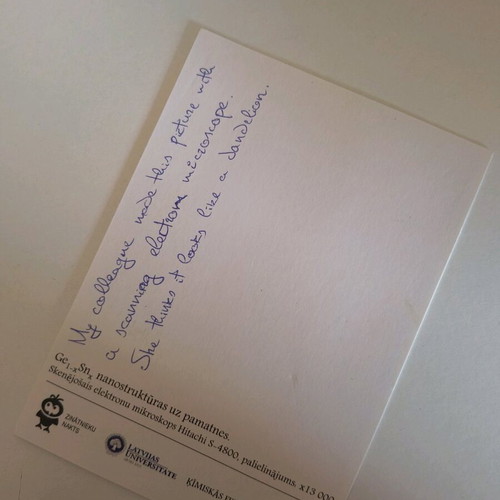 My colleague made this picture with
a scanning electron microscope.
She thinks it looks like a dandelion.
Ge1-xSnx nanostruktūras uz pamatnes.
Skenējošais elektronu mikroskops Hitachi S-4800, palielinājums, x13 000
ZINĀTNIEKU
NAKTS
LATVIJAS
UNIVERSITĀTE
ĶĪMISKĀS